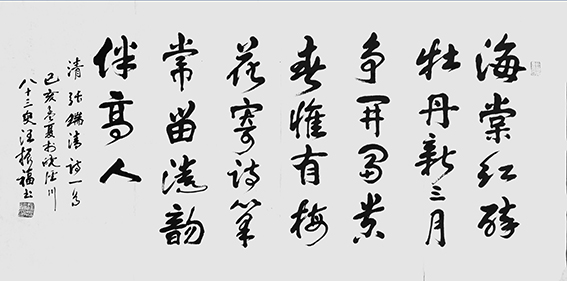 海棠红醉
牡丹新三月
争开富贵
春惟有梅
花寄诗笔
常留韵
伴高人
清 张瑞清诗一首
己亥夏于川
八十三叟汪振福书